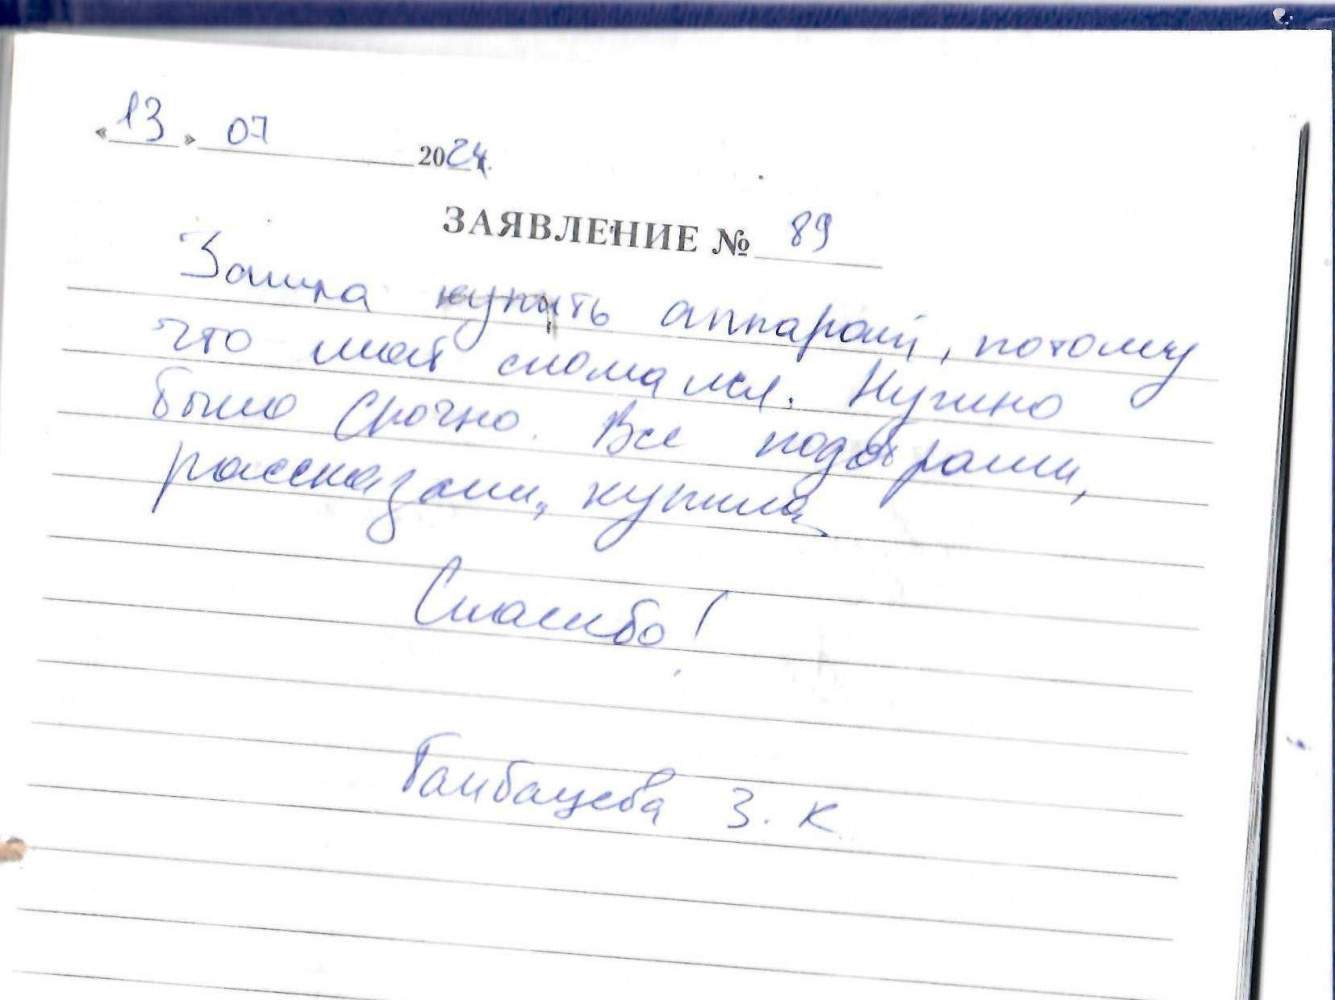 «13» 07 2024г.
ЗАЯВЛЕНИЕ № 89
Зашла купить аппарат, потому
что мой сломался. Нужно
было срочно. Все подобрали,
рассказали, купила
Спасибо!
З. К